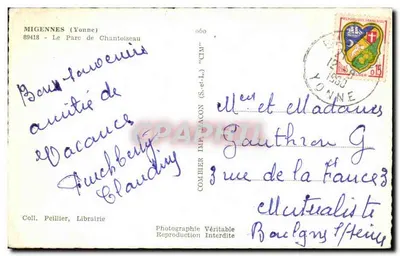 MIGENNES (Yonne)
89418 - Le Parc de Chanteiseau
Bons souvenirs
amitié de
Vacance
Claudny
Coll. Peillier, Librairie
COMBIER IMP. MACON (S.-et-L.) "CIM"
YONNE
0,15
Mr et Madame
Gauthron G
3 rue de la France 3
Mutualiste
Boulgns s/seine
Photographie Véritable
Reproduction Interdite